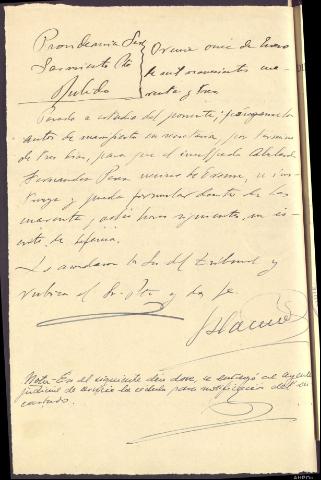 Providencia Sres
Sarmiento Pte
Pulido
Orense once de Enero
de mil novecientos cua-
renta y tres
Pasado a estudio del ponente, pónganse los
autos de manifiesto en secretaria, por termino
de tres dias, para que el inculpado Abelardo
Fernandez Pena vecino de Orense, se ins-
truya y pueda formular dentro de las
cuarenta y ocho horas siguientes, su es-
crito de defensa.
Lo acordaron los Sres del Tribunal y
rubrica el Sr. Pte y doy fe
Nota: En el siguiente dia doce, se entregó al agente
judicial de servicio la cedula para notificacion del in-
culpado.
AHPOu